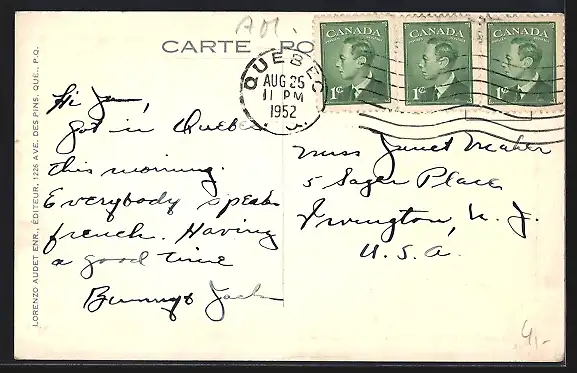 CARTE PO
CANADA
1¢
CANADA
1¢
CANADA
1¢
QUEBEC
AUG 25
11 PM
1952
P.Q.
LORENZO AUDET ENR., ÉDITEUR, 1226 AVE. DES PINS, QUÉ., P.Q.
Hi
Got in Quebec
this morning.
Everybody speaks
french. Having
a good time
Bunny & Jack
Miss Janet Maher
5 Sager Place
Irvington, N. J.
U. S. A.
4,-